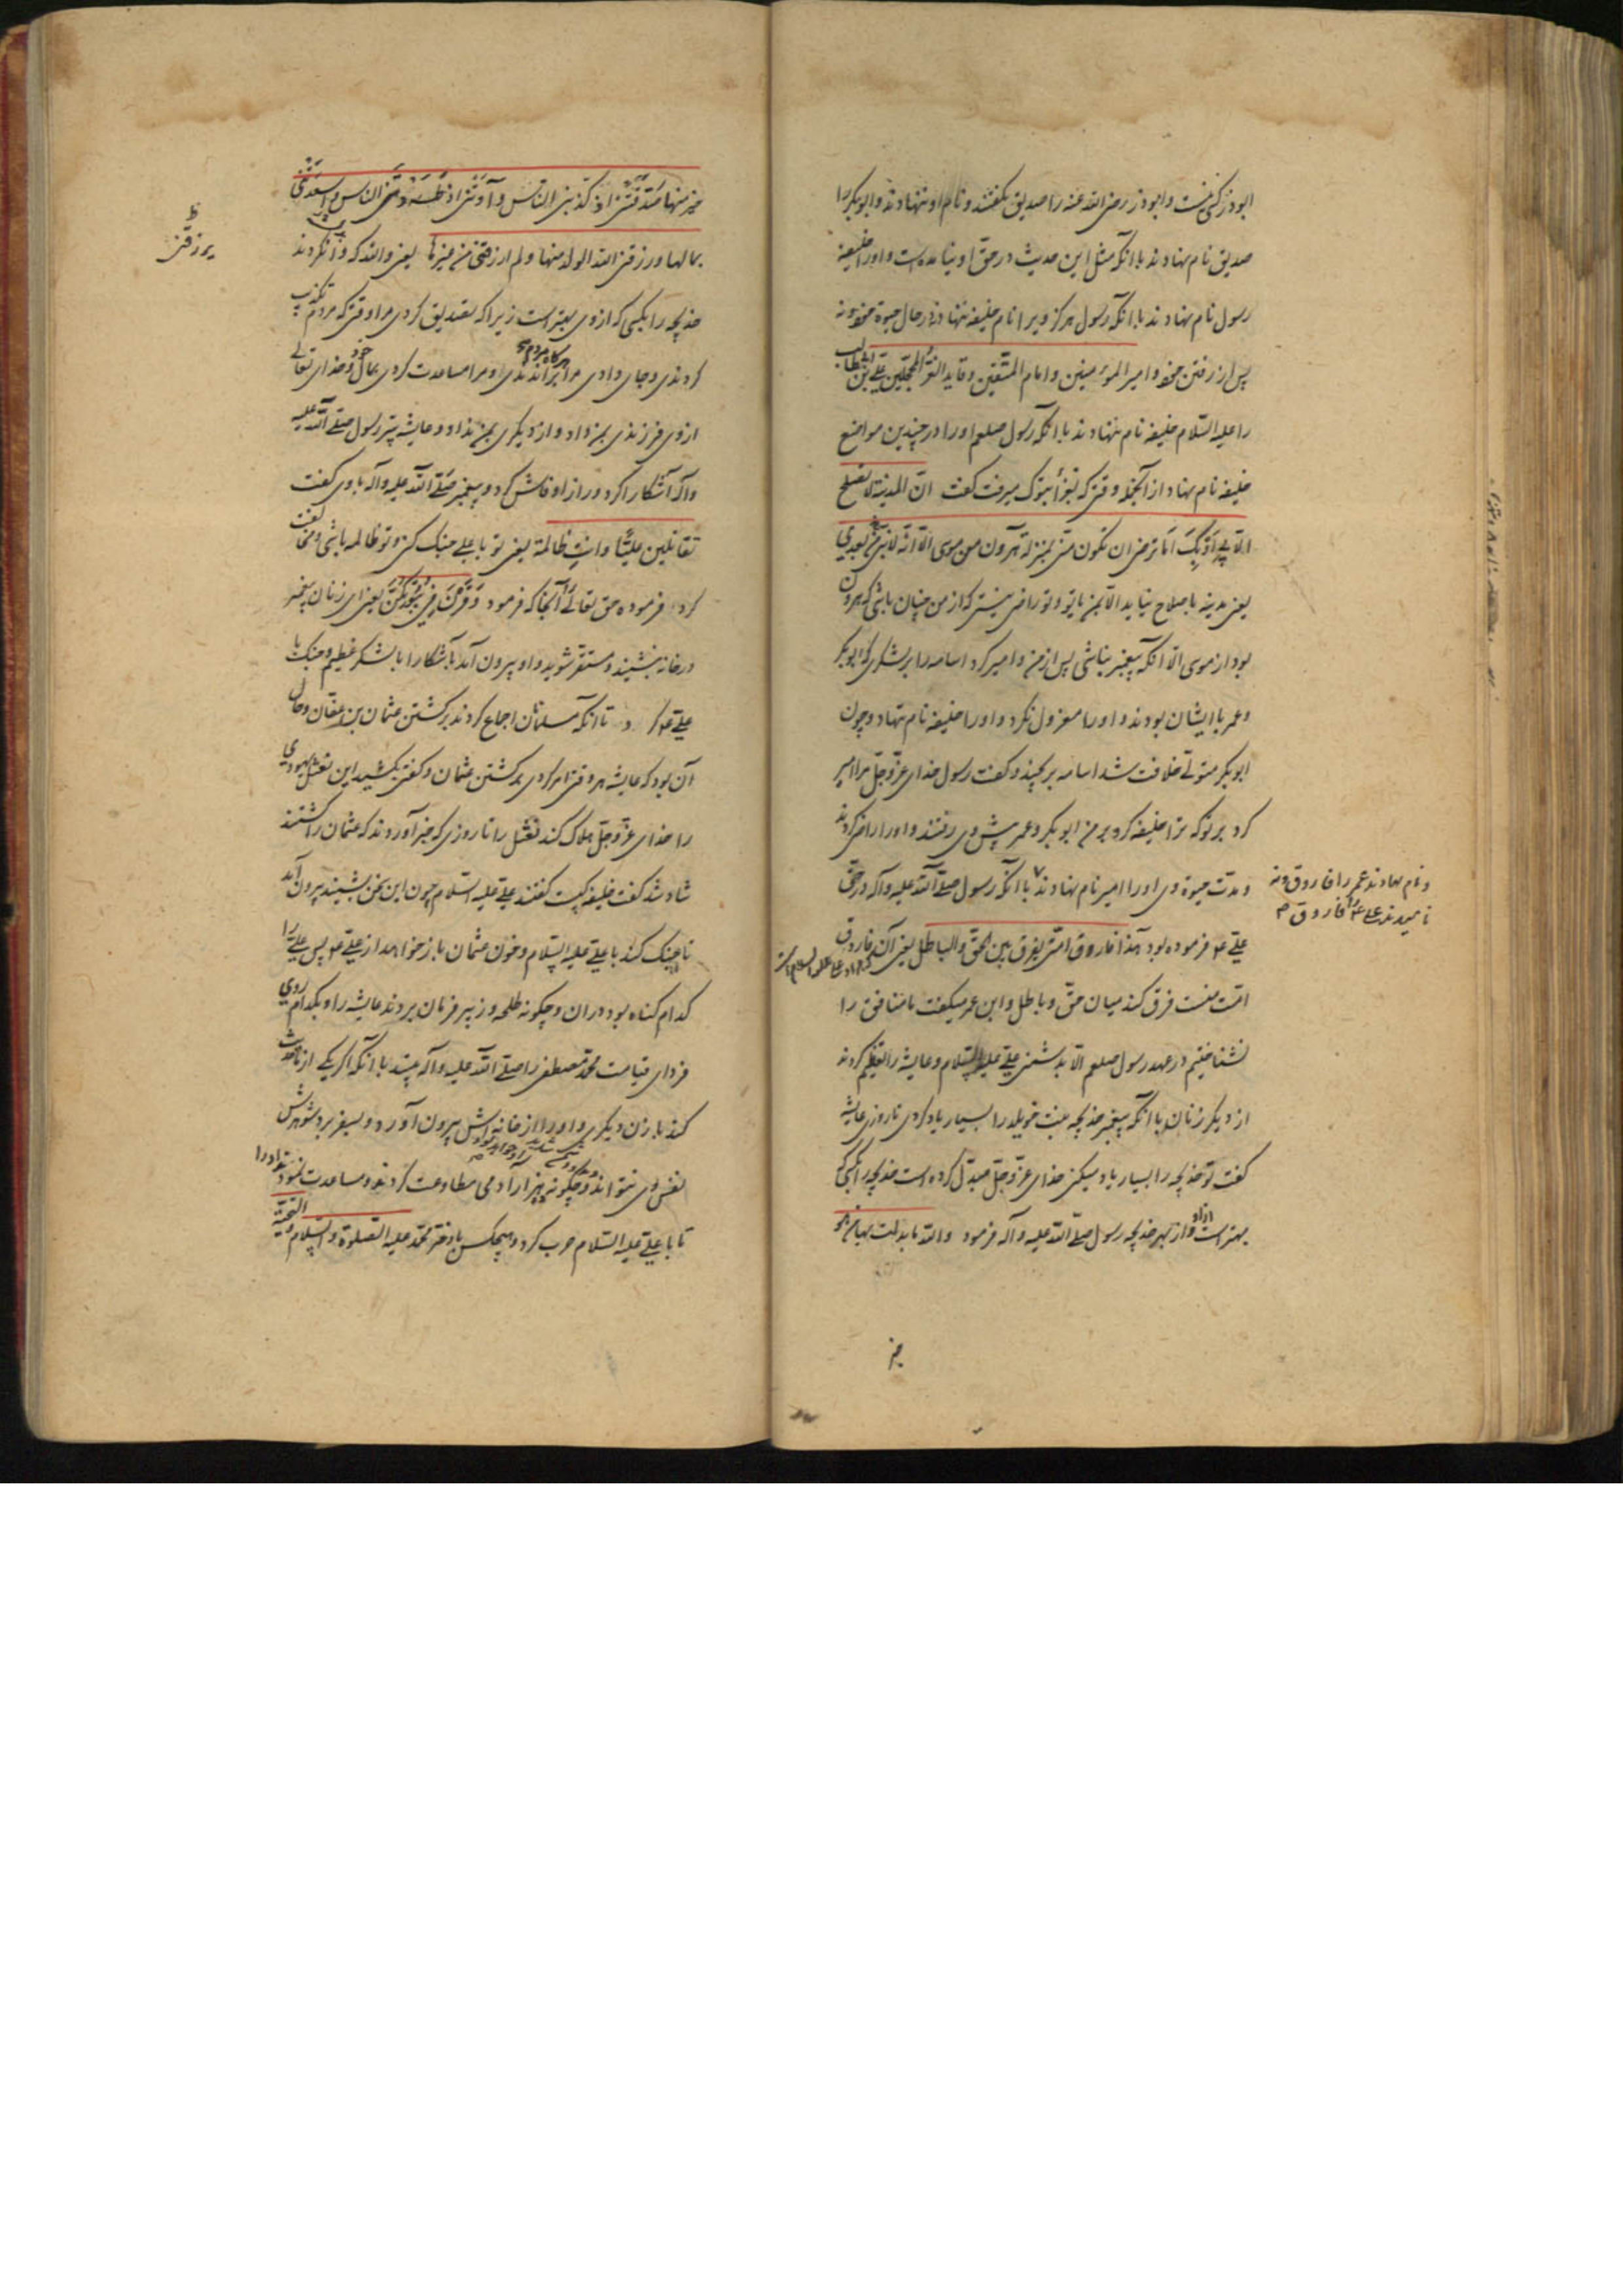 ابوذر کی نیست و ابوذر رضی الله عنه را صدیق نکفتند و نام او ننهادند و ابوبکر را
صدیق نام نهادند با انکه مثل این حدیث در حق او نیامده است و اورا خلیفه
رسول نام نهادند با انکه رسول هرکز ویرا نام خلیفه ننهاد نه در حال حیوة خود و نه
پس از رفتن خود و امیر المؤمنین و امام المتقین و قاید الغر المحجلین علی بن ابی طالب
را علیه السلام خلیفه نام ننهادند با انکه رسول صلعم اورا در چندین مواضع
خلیفه نام نهاد از انجمله وقتی که بغزای تبوک میرفت کفت انّ المدینة لا تصلح
الا بی او بک اما ترضی ان تکون منّی بمنزلة هرون من موسی الا انه لا نبی بعدی
یعنی مدینه باصلاح نیاید الا بمن یا بتو و تو راضی نیستی که از من چنان باشی که هرون
بود از موسی الا انکه پیغمبر نباشی پس از من و امیر کرد اسامه را بر لشکری که ابوبکر
و عمر با ایشان بودند و اورا معزول نکرد و اورا خلیفه نام ننهاد و چون
ابوبکر متولی خلافت شد اسامه برنجید و کفت رسول خدای عزوجل مرا امیر
کرد بر تو که ترا خلیفه کرد بر من ابوبکر و عمر پیش وی رفتند و اورا راضی کردند
و مدت حیوة وی اورا امیر نام نهادند با انکه رسول صلی الله علیه و آله در حق
و نام نهادند عمر را فاروق و نه
نامیدند علی را فاروق
علی فرموده بود هذا فاروق امتی یفرق بین الحق و الباطل یعنی آن فاروق
امت منست فرق کند میان حق و باطل و ابن عمر میکفت ما منافق را
نشناختیم در عهد رسول صلعم الا بدشمنی علی علیه السلام و عایشه را تعظیم کردند
از دیکر زنان با انکه پیغمبر خدیجه بنت خویلد را بسیار یاد کردی تا روزی عایشه
کفت تو خدیجه را بسیار یاد میکنی خدای عزوجل مبدل کرده است خدیجه را بکسی که
بهتر است از او از بهر خدیجه رسول صلی الله علیه و آله فرمود والله ما بدلت بها من هو
خیر
خیر منها صدقتنی اذ کذبنی الناس و آوتنی اذ طردنی الناس و اسعدتنی
بمالها و رزقنی الله الولد منها و لم ارزق من غیرها یعنی والله که وا نکردند
یرزقنی
خدیجه را بکسی که از وی بهتر است زیرا که تصدیق کردی مرا وقتی که مردم تکذیب
کردندی و جای دادی مرا هرکاه مردم براندندی و مرا مساعدت کردی بمال خود و خدای تعالی
از وی فرزندی بمن داد و از دیکری بمن نداد و عایشه سر رسول صلی الله علیه
و آله آشکارا کرد و راز او فاش کرد و پیغمبر صلی الله علیه و آله با وی کفت
تقاتلین علیا و انت ظالمة یعنی تو با علی جنک کنی و تو ظالمه باشی و مخالفت
کرد فرموده حق تعالی آنجا که فرمود و قرن فی بیوتکن یعنی ای زنان پیغمبر
در خانه بنشینید و مستقر شوید و او بیرون آمد باشکارا با لشکر عظیم و جنک با
علی کرد تا انکه مسلمانان اجماع کردند بر کشتن عثمان بن عفان و حال
آن بود که عایشه هر وقتی امر کردی بر کشتن عثمان و کفتی بکشید این نعثل یهودی
را خدای عزوجل هلاک کند نعثل را تا روزی که خبر آوردند که عثمان را کشتند
شاد شد کفت خلیفه کیست کفتند علی علیه السلام چون این سخن بشنید بیرون آمد
تا جنک کند با علی علیه السلام و خون عثمان باز خواهد از علی پس علی را
کدام کناه بود در ان و چکونه طلحه و زبیر فرمان بردند عایشه را و بکدام روی
فردای قیامت محمد مصطفی را صلی الله علیه و آله بینند با انکه اکر یکی از ما حدیث
کند با زن دیکری و اورا از خانه اش بیرون آورد و بسفر برد شوهرش
نفس وی نتواند و چکونه هزار آدمی مطاوعت کردند و مساعدت نمودند اورا
تا با علی علیه السلام حرب کرد و هیچکس با دختر محمد علیه الصلوة و السلام و التحیة